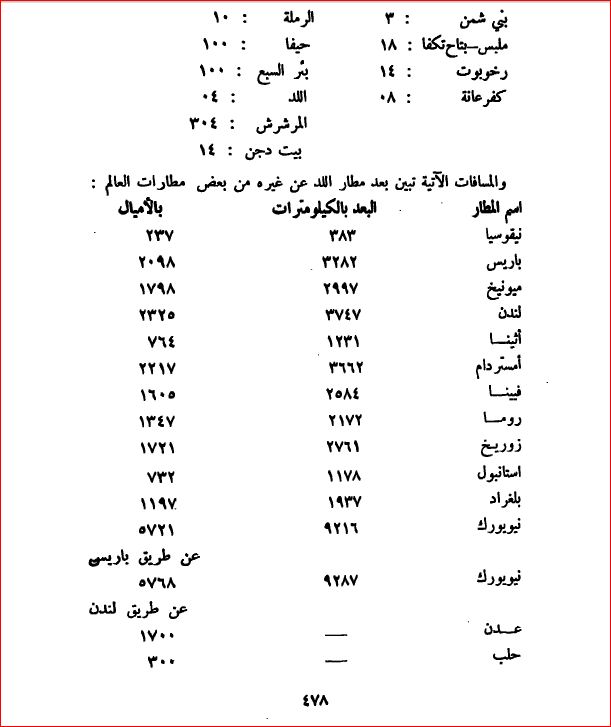 بني شمن : ٣ الرملة : ١٠
ملبس–بتاح تكفا : ١٨ حيفا : ١٠٠
رخوبوت : ١٤ بئر السبع : ١٠٠
كفرعانة : ٠٨ اللد : ٠٤
المرشرش : ٣٠٤
بيت دجن : ١٤
والمسافات الآتية تبين بعد مطار اللد عن غيره من بعض مطارات العالم :
اسم المطار البعد بالكيلومترات بالأميال
نيقوسيا ٣٨٣ ٢٣٧
باريس ٣٢٨٢ ٢٠٩٨
ميونيخ ٢٩٩٧ ١٧٩٨
لندن ٣٧٤٧ ٢٣٢٥
أثينـــا ١٢٣١ ٧٦٤
أمستردام ٣٦٦٢ ٢٢١٧
فيينـــا ٢٥٨٤ ١٦٠٥
رومـــا ٢١٧٢ ١٣٤٧
زوريـخ ٢٧٦١ ١٧٢١
استانبول ١١٧٨ ٧٣٢
بلغراد ١٩٣٧ ١١٩٧
نيويورك ٩٢١٦ ٥٧٢١
عن طريق باريس
نيويورك ٩٢٨٧ ٥٧٦٨
عن طريق لندن
عـــدن — ١٧٠٠
حلب — ٣٠٠
٤٧٨